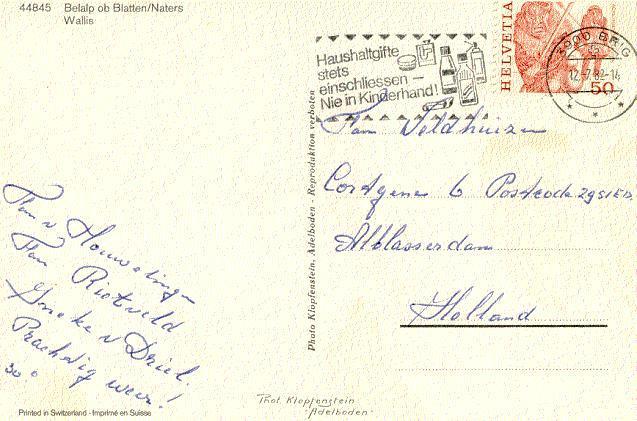 44845 Belalp ob Blatten/Naters
Wallis
Haushaltgifte
stets
einschliessen –
Nie in Kinderhand!
HELVETIA
50
3900 BRIG
12-7.82-14
Fam Veldhuizen
Cortgene 6 Postcode 2951 ED
Alblasserdam
Holland
Fam v Houwelingen
Fam Rietveld
Joneke v Driel.
Prachtig weer!
30°
Photo Klopfenstein, Adelboden - Reproduktion verboten
Phot. Klopfenstein
- Adelboden -
Printed in Switzerland - Imprimé en Suisse